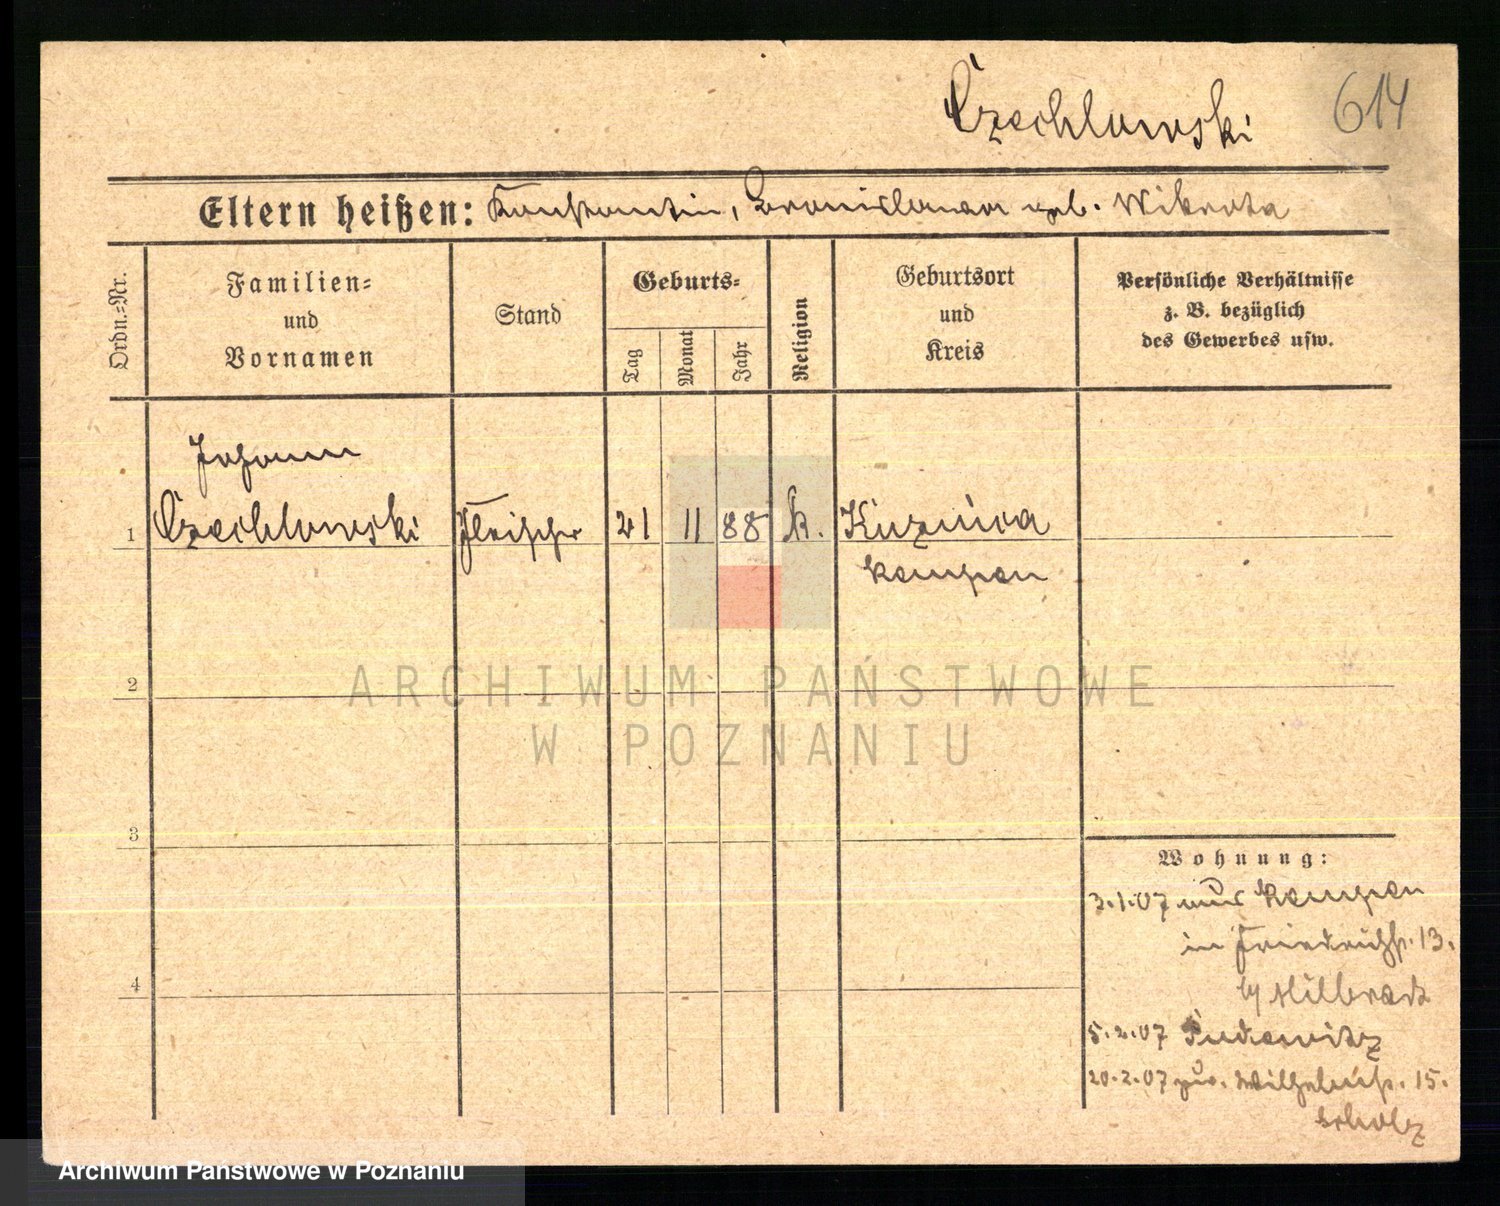 Czechlowski
614
Eltern heißen: Konstantin, Bronislawa geb. Wikrota
Ordn.=Nr.
Familien=
und
Vornamen
Stand
Geburts=
Tag
Monat
Jahr
Religion
Geburtsort
und
Kreis
Persönliche Verhältnisse
z. B. bezüglich
des Gewerbes usw.
Johann
1 Czechlowski Fleischer 21 11 88 k. Kuznica
Kempen
2
ARCHIWUM PAŃSTWOWE
W POZNANIU
3
Wohnung:
3.1.07 aus Kempen
in Friedrichst. 13.
4
by Hilbrack
5.2.07 Pudewitz
20.2.07 zur. Wilhelmst. 15.
Scholz
Archiwum Państwowe w Poznaniu